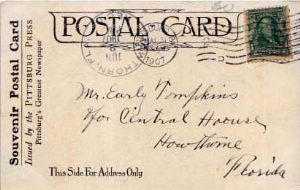 POSTAL CARD
Souvenir Postal Card
Issued by the PITTSBURG PRESS
Pittsburg's Greatest Newspaper
HAWTHORN, FLA.
JUN
1907
Mr. Early Tompkins
Central House
Hawthorne
Florida
This Side For Address Only